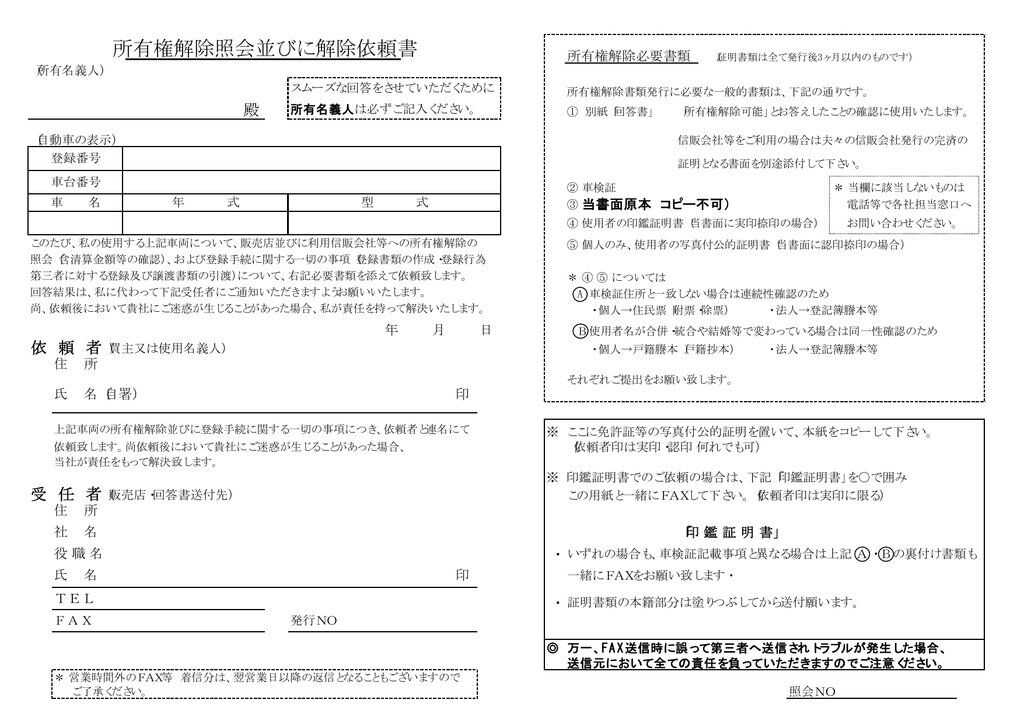 所有権解除照会並びに解除依頼書
(所有名義人)
スムーズな回答をさせていただくために
殿
所有名義人は必ずご記入ください。
(自動車の表示)
登録番号
車台番号
車　名　年　式　型　式
このたび、私の使用する上記車両について、販売店並びに利用信販会社等への所有権解除の
照会(含清算金額等の確認)、および登録手続に関する一切の事項(登録書類の作成・登録行為
第三者に対する登録及び譲渡書類の引渡)について、右記必要書類を添えて依頼致します。
回答結果は、私に代わって下記受任者にご通知いただきますようお願いいたします。
尚、依頼後において貴社にご迷惑が生じることがあった場合、私が責任を持って解決いたします。
年　月　日
依 頼 者(買主又は使用名義人)
住　所
氏　名(自署)　印
上記車両の所有権解除並びに登録手続に関する一切の事項につき、依頼者と連名にて
依頼致します。尚依頼後において貴社にご迷惑が生じることがあった場合、
当社が責任をもって解決致します。
受 任 者(販売店・回答書送付先)
住　所
社　名
役 職 名
氏　名　印
ＴＥＬ
ＦＡＸ　発行NO
＊ 営業時間外のFAX等　着信分は、翌営業日以降の返信となることもございますので
ご了承ください。
所有権解除必要書類　(証明書類は全て発行後3ヶ月以内のものです)
所有権解除書類発行に必要な一般的書類は、下記の通りです。
① 別紙「回答書」　「所有権解除可能」とお答えしたことの確認に使用いたします。
信販会社等をご利用の場合は夫々の信販会社発行の完済の
証明となる書面を別途添付して下さい。
② 車検証
③ 当書面原本(コピー不可)
④ 使用者の印鑑証明書(当書面に実印捺印の場合)
⑤ 個人のみ、使用者の写真付公的証明書(当書面に認印捺印の場合)
＊ 当欄に該当しないものは
電話等で各社担当窓口へ
お問い合わせください。
＊ ④ ⑤ については
Ⓐ車検証住所と一致しない場合は連続性確認のため
・個人→住民票(附票・除票)　・法人→登記簿謄本等
Ⓑ使用者名が合併・統合や結婚等で変わっている場合は同一性確認のため
・個人→戸籍謄本(戸籍抄本)　・法人→登記簿謄本等
それぞれご提出をお願い致します。
※ ここに免許証等の写真付公的証明を置いて、本紙をコピーして下さい。
(依頼者印は実印・認印 何れでも可)
※ 印鑑証明書でのご依頼の場合は、下記「印鑑証明書」を○で囲み
この用紙と一緒にFAXして下さい。(依頼者印は実印に限る)
「印 鑑 証 明 書」
・ いずれの場合も、車検証記載事項と異なる場合は上記 Ⓐ・Ⓑの裏付け書類も
一緒にFAXをお願い致します・
・ 証明書類の本籍部分は塗りつぶしてから送付願います。
◎ 万一、FAX送信時に誤って第三者へ送信されトラブルが発生した場合、
送信元において全ての責任を負っていただきますのでご注意ください。
照会NO